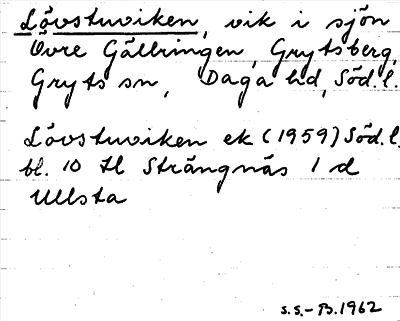 Lövstuviken, vik i sjön
Övre Gällringen, Grytsberg,
Gryts sn, Daga hd, Söd.l.
Lövstuviken ek (1959) Söd.l.
bl. 10 Hl Strängnäs 1 d
Ullsta
S.S.-B. 1962